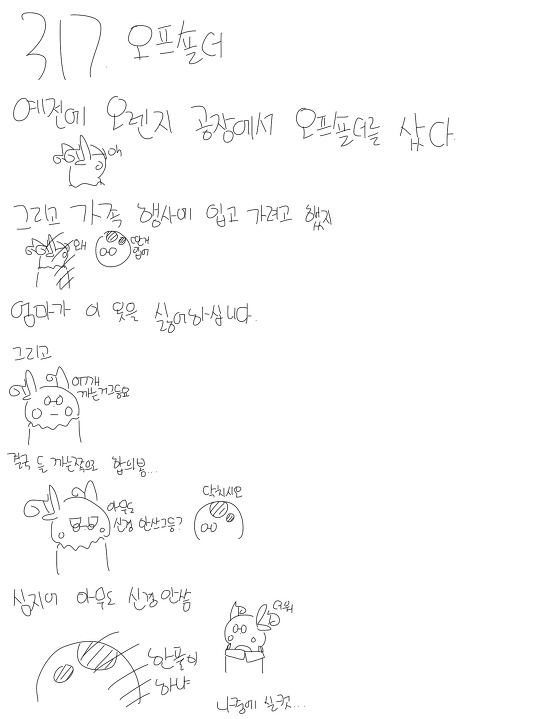 317. 오프숄더
예전에 오렌지 공장에서 오프숄더를 샀다.
oh
그리고 가족 행사에 입고 가려고 했지
왜
딴거 입어
엄마가 이 옷을 싫어하십니다.
그리고
어깨 까는거그등요
결국 둘 까는쪽으로 합의봄...
아무도 신경 안쓰그등?
닥치시오
심지어 아무도 신경안씀
한풀이 하냐
더워
나중에 살껄...